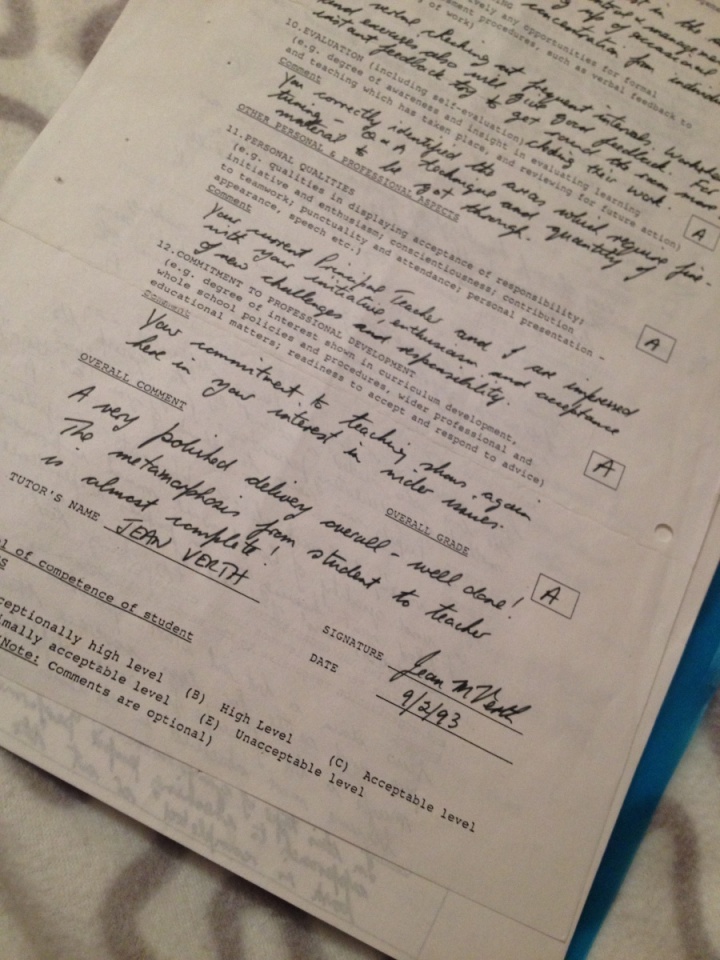 tively any opportunities for formal
ement procedures, such as verbal feedback to
of work)
verbal checking at frequent intervals. Worked
and exercises also will give good feedback. For
instant feedback try to get round the room more
10.EVALUATION (including self-evaluation)
(e.g. degree of awareness and insight in evaluating learning
and teaching which has taken place, and reviewing for future action)
Comment
You correctly identified the areas which require fine-
tuning - Q & A technique and quantity of
material to be got through.
A
OTHER PERSONAL & PROFESSIONAL ASPECTS
11.PERSONAL QUALITIES
(e.g. qualities in displaying acceptance of responsibility;
initiative and enthusiasm; conscientiousness, contribution
to teamwork; punctuality and attendance; personal presentation -
appearance, speech etc.)
Comment
Your current Principal Teacher and I are impressed
with your initiative, enthusiasm and acceptance
of new challenges and responsibility.
A
12.COMMITMENT TO PROFESSIONAL DEVELOPMENT
(e.g. degree of interest shown in curriculum development,
whole school policies and procedures, wider professional and
educational matters; readiness to accept and respond to advice)
Comment
Your commitment to teaching shows again
here in your interest in wider issues.
A
OVERALL COMMENT
A very polished delivery overall - well done!
The metamorphosis from student to teacher
is almost complete!
OVERALL GRADE
A
TUTOR'S NAME JEAN VERTH
SIGNATURE Jean M Verth
DATE 9/2/93
l of competence of student
ceptionally high level (B) High Level (C) Acceptable level
imally acceptable level (E) Unacceptable level
Note: Comments are optional)